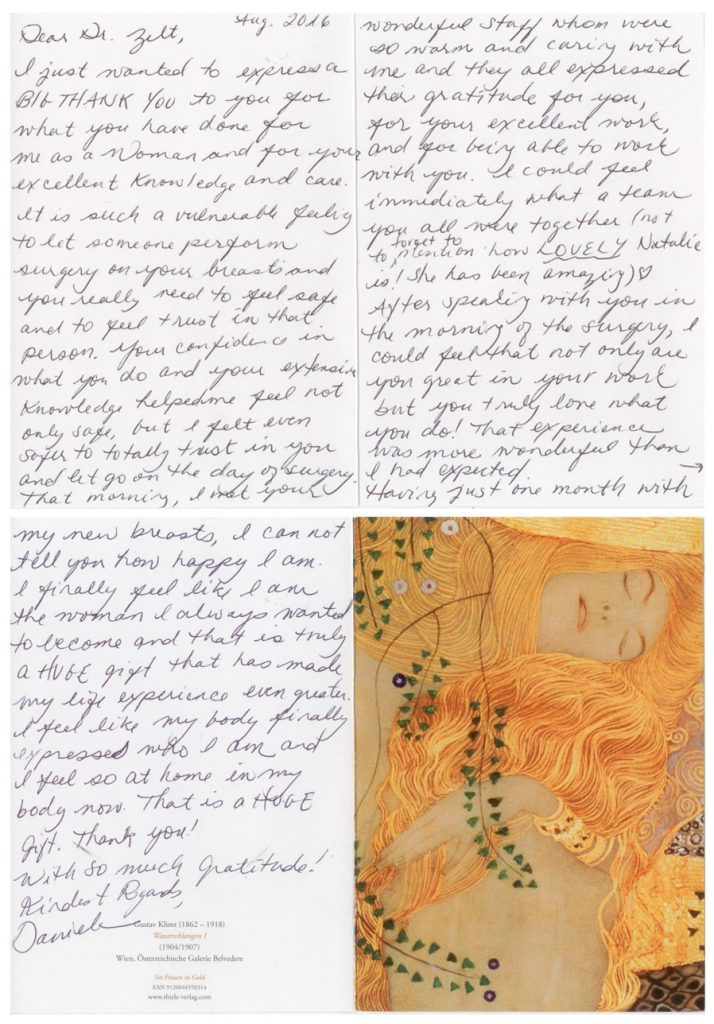 Aug. 2016
Dear Dr. Zelt,
I just wanted to express a
BIG THANK YOU to you for
what you have done for
me as a Woman and for your
excellent Knowledge and care.
It is such a vulnerable feeling
to let someone perform
surgery on your breasts and
you really need to feel safe
and to feel trust in that
person. Your confidence in
what you do and your extensive
Knowledge helped me feel not
only safe, but I felt even
safer to totally trust in you
and let go on the day of surgery.
That morning, I met your
wonderful staff whom were
so warm and caring with
me and they all expressed
their gratitude for you,
for your excellent work,
and for being able to work
with you. I could feel
immediately what a team
you all were together (not
to forget to mention how LOVELY Natalie
is! She has been amazing)♡
After speaking with you in
the morning of the surgery, I
could feel that not only are
you great in your work
but you truly love what
you do! That experience
was more wonderful than
I had expected →
Having just one month with
my new breasts, I can not
tell you how happy I am.
I finally feel like I am
the woman I always wanted
to become and that is truly
a HUGE gift that has made
my life experience even greater.
I feel like my body finally
expresses who I am and
I feel so at home in my
body now. That is a HUGE
Gift. Thank you!
With so much gratitude!
Kindest Regards,
Daniela
Gustav Klimt (1862 – 1918)
Wasserschlangen I
(1904/1907)
Wien, Österreichische Galerie Belvedere
Set Frauen in Gold
EAN 9120044550314
www.thiele-verlag.com